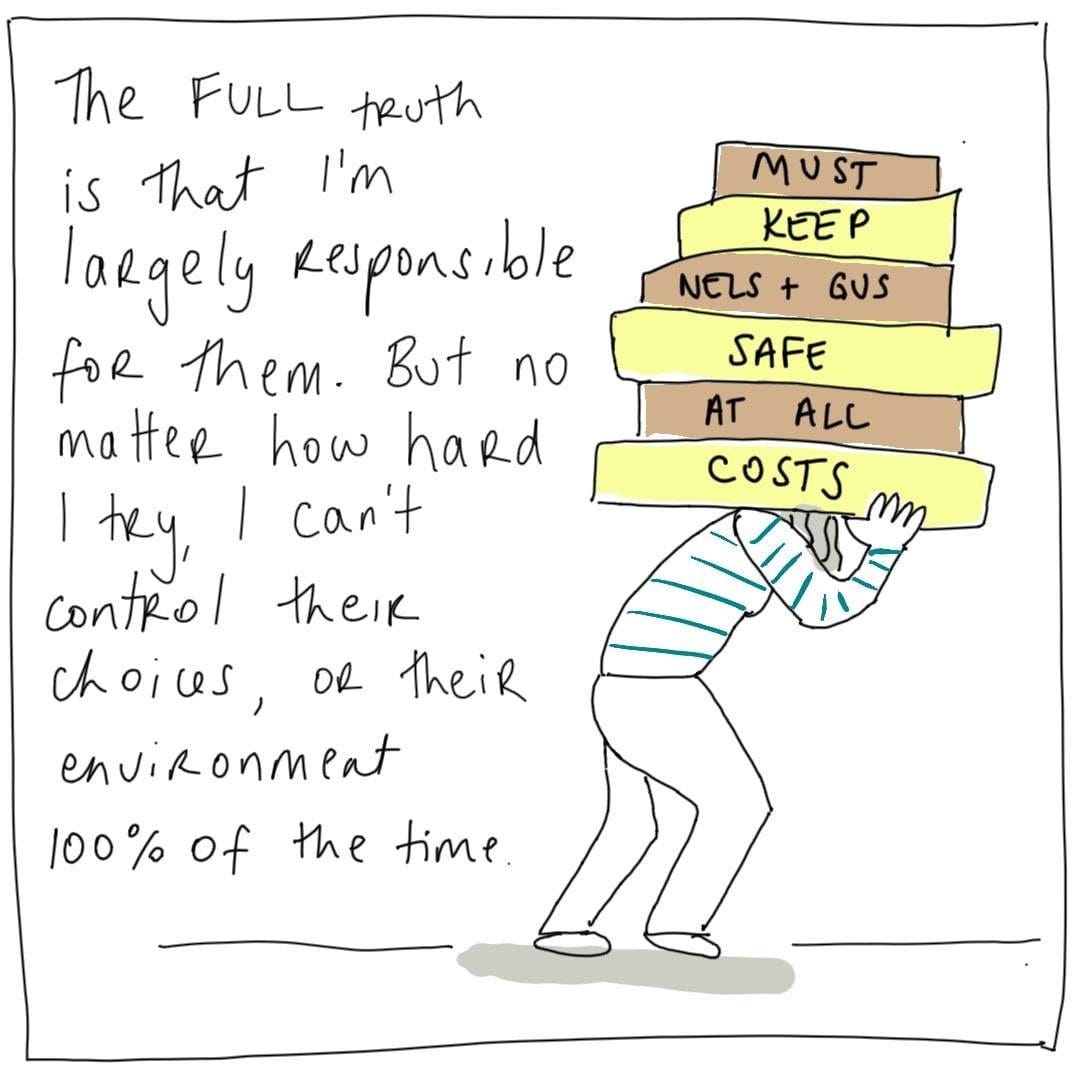 The FULL truth
is that I'm
largely responsible
for them. But no
matter how hard
I try, I can't
control their
choices, or their
environment
100% of the time.
MUST
KEEP
NELS + GUS
SAFE
AT ALL
COSTS